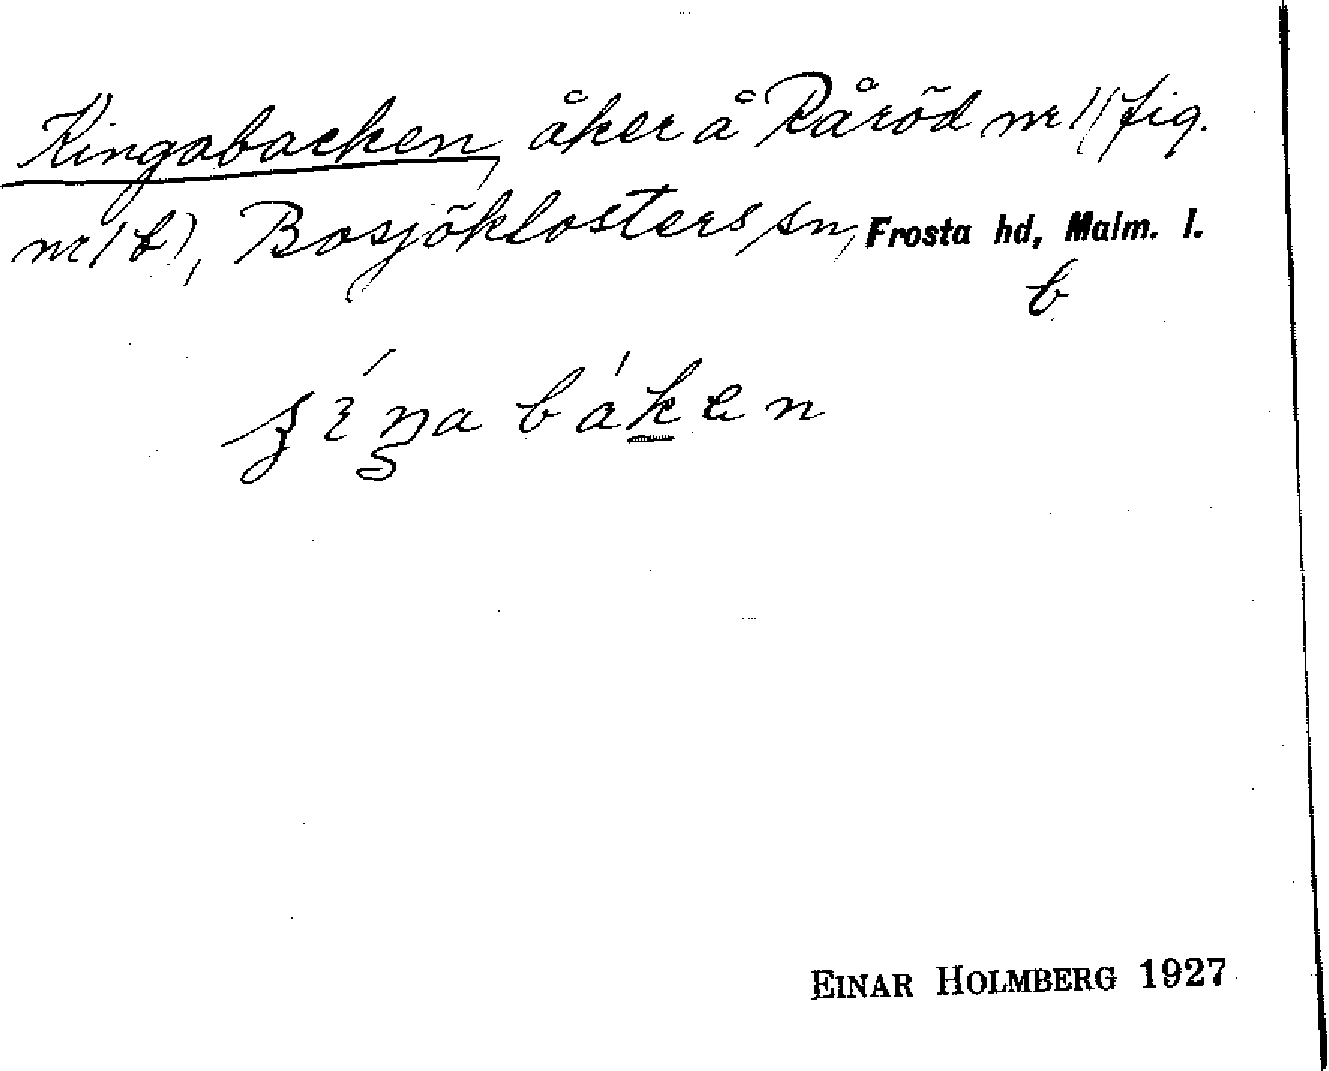 Kingabacken, åker å Råröd nr 1 (fig.
nr 1 b), Bosjöklosters sn, Frosta hd, Malm. l.
b
báken
EINAR HOLMBERG 1927